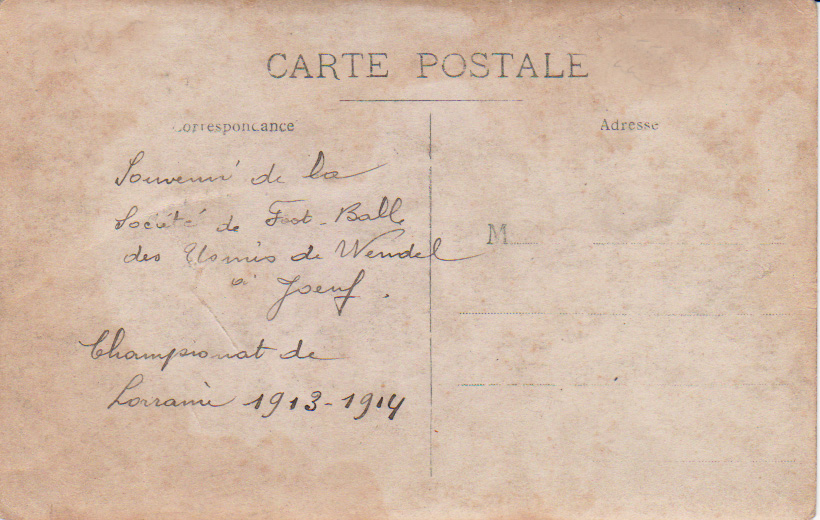 CARTE POSTALE
Correspondance
Adresse
Souvenir de la
Société de Foot-Ball
des Usines de Wendel
à Joeuf.
Championat de
Lorraine 1913-1914
M